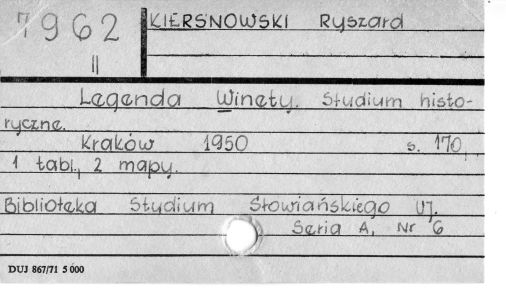 7962
II
KIERSNOWSKI Ryszard
Legenda Winety. Studium histo-
ryczne.
Kraków 1950 s. 170,
1 tabl., 2 mapy.
Biblioteka Studium Słowiańskiego UJ.
Seria A, Nr 6
DUJ 867/71 5 000